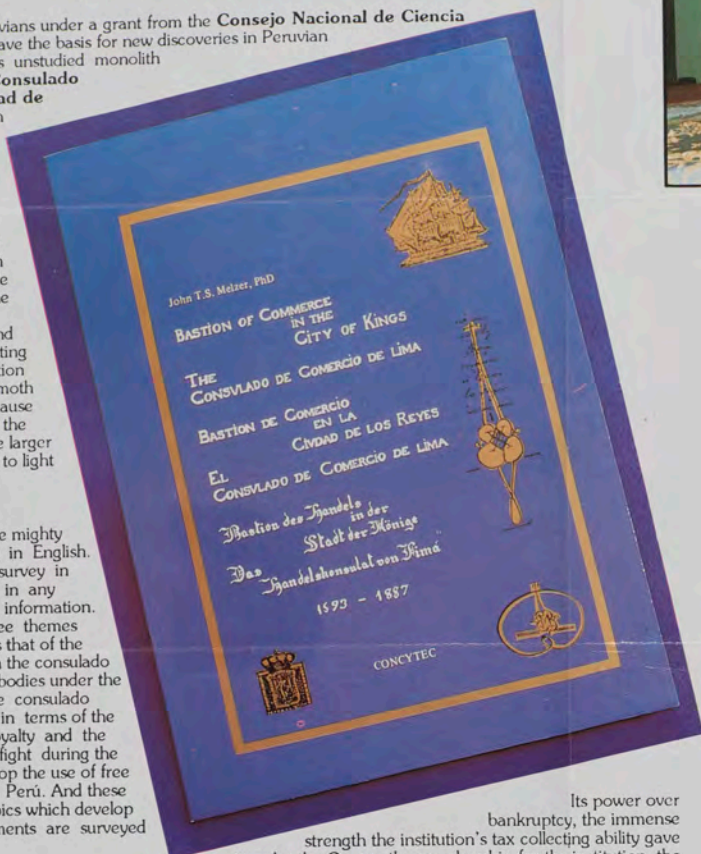 vians under a grant from the Consejo Nacional de Ciencia
ave the basis for new discoveries in Peruvian
s unstudied monolith
onsulado
ad de
n
e
e
nd
ting
ion
noth
ause
the
e larger
to light
e mighty
in English.
survey in
in any
information.
ee themes
s that of the
n the consulado
bodies under the
e consulado
in terms of the
yalty and the
fight during the
op the use of free
Perú. And these
pics which develop
ments are surveyed
John T.S. Melzer, PhD
BASTION OF COMMERCE
IN THE
CITY OF KINGS
THE
CONSVLADO DE COMERCIO DE LIMA
BASTION DE COMERCIO
EN LA
CIVDAD DE LOS REYES
EL
CONSVLADO DE COMERCIO DE LIMA
Bastion des Handels
in der
Stadt der Könige
Das
Handelskonsulat von Lima
1593 - 1887
CONCYTEC
Its power over
bankruptcy, the immense
strength the institution's tax collecting ability gave